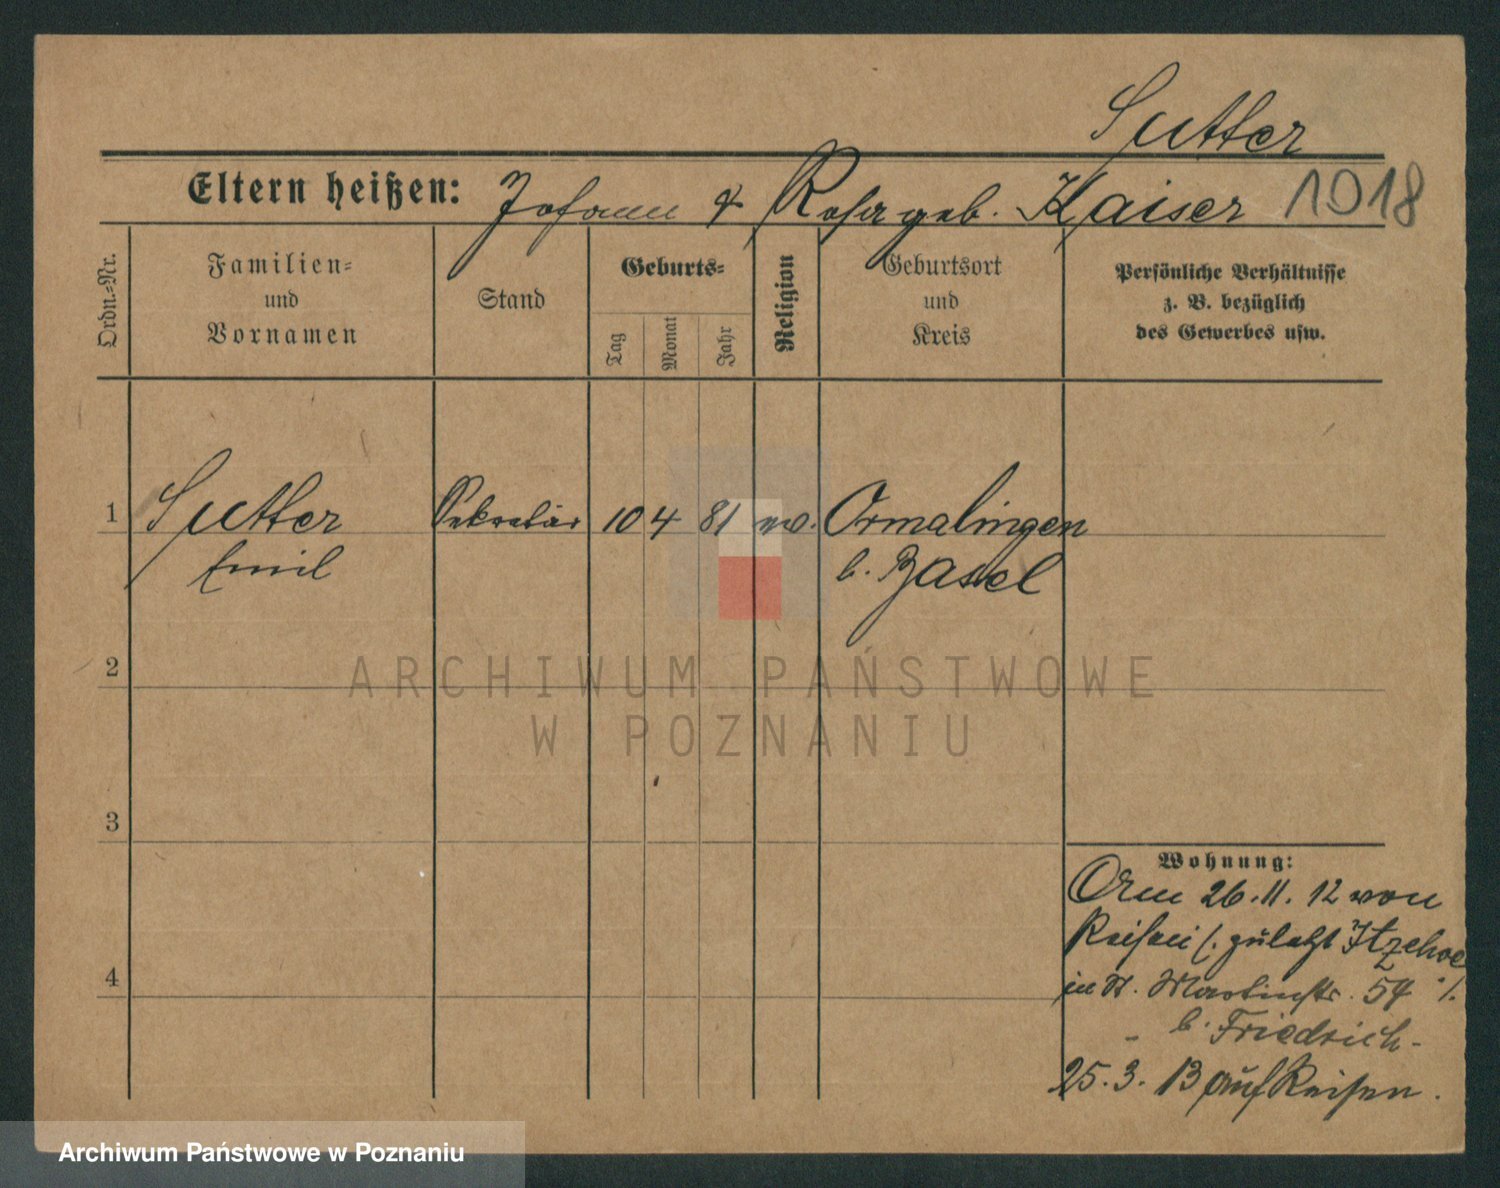 Sutter
Eltern heißen: Johann & Rosa geb. Kaiser 1918
Ordn.-Nr.
Familien-
und
Vornamen
Stand
Geburts-
Tag
Monat
Jahr
Religion
Geburtsort
und
Kreis
Persönliche Verhältnisse
z. B. bezüglich
des Gewerbes usw.
1 Sutter Sekretär 10 4 81 ev. Ormalingen
Emil b. Basel
2
ARCHIWUM PAŃSTWOWE
W POZNANIU
3
Wohnung:
26.11.12 von
Reisen zuletzt Itzehoe
in St. Martinstr. 54
b. Friedrich
4
25.3.13 auf Reisen.
Archiwum Państwowe w Poznaniu